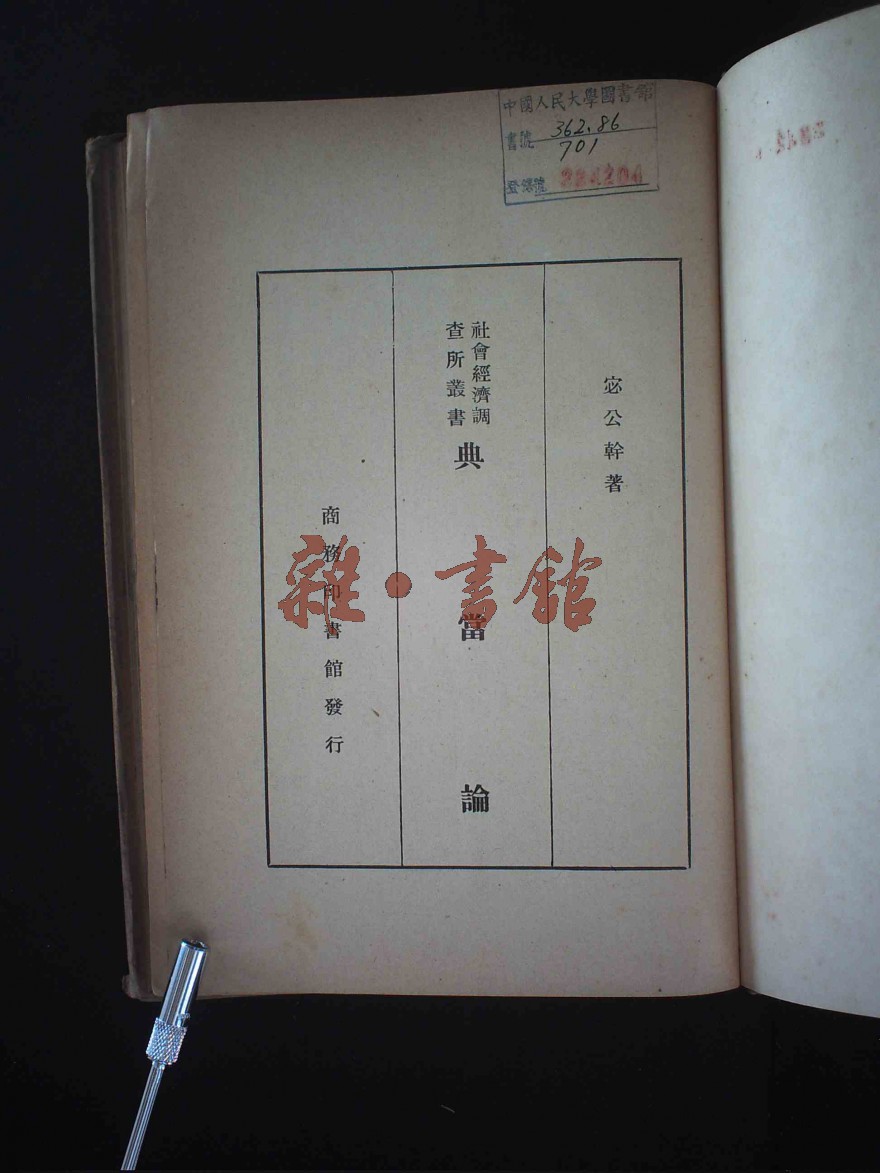 中國人民大學圖書館
書號 362.86
701
登錄號
宓公幹著
社會經濟調
查所叢書
典當論
商務印書館發行
雜·書館